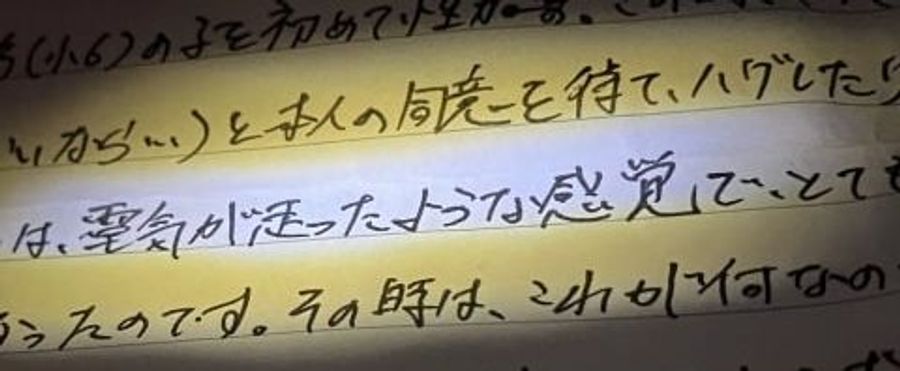 (小6)の子を初めて性加
いから…)と本人の同意を得て、ハグした
は、電気が走ったような感覚で、とても
ったのです。その時は、これが何なの